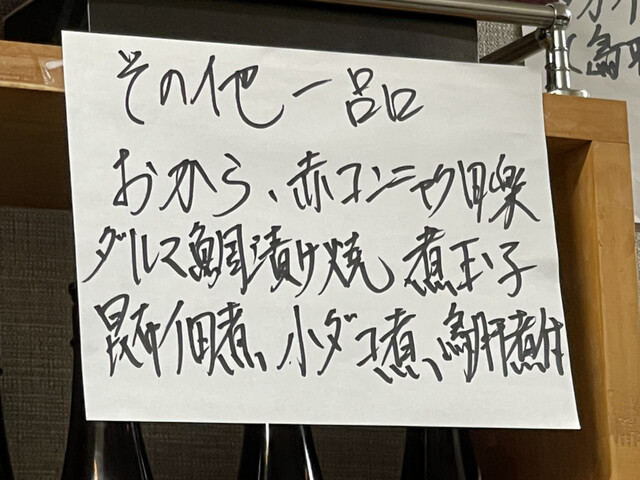 その他一品
おから、赤コンニャク田楽
ダルマ鯛漬け焼 煮玉子
昆布佃煮、小ダコ煮、鳥肝煮付